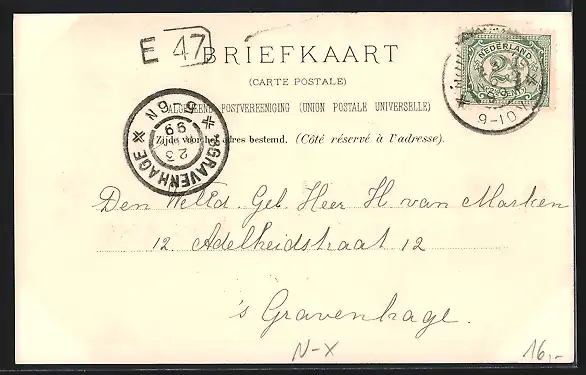 E 47
BRIEFKAART
(CARTE POSTALE)
ALGEMEENE POSTVEREENIGING (UNION POSTALE UNIVERSELLE)
Zijde voor het adres bestemd. (Côté réservé à l'adresse).
NEDERLAND
2½
CENT
9-10
'S GRAVENHAGE
23
99
6 N
Den Weltd. Geb. Heer H. van Marken
12. Adelheidstraat 12
's Gravenhage.
N-X
16,-